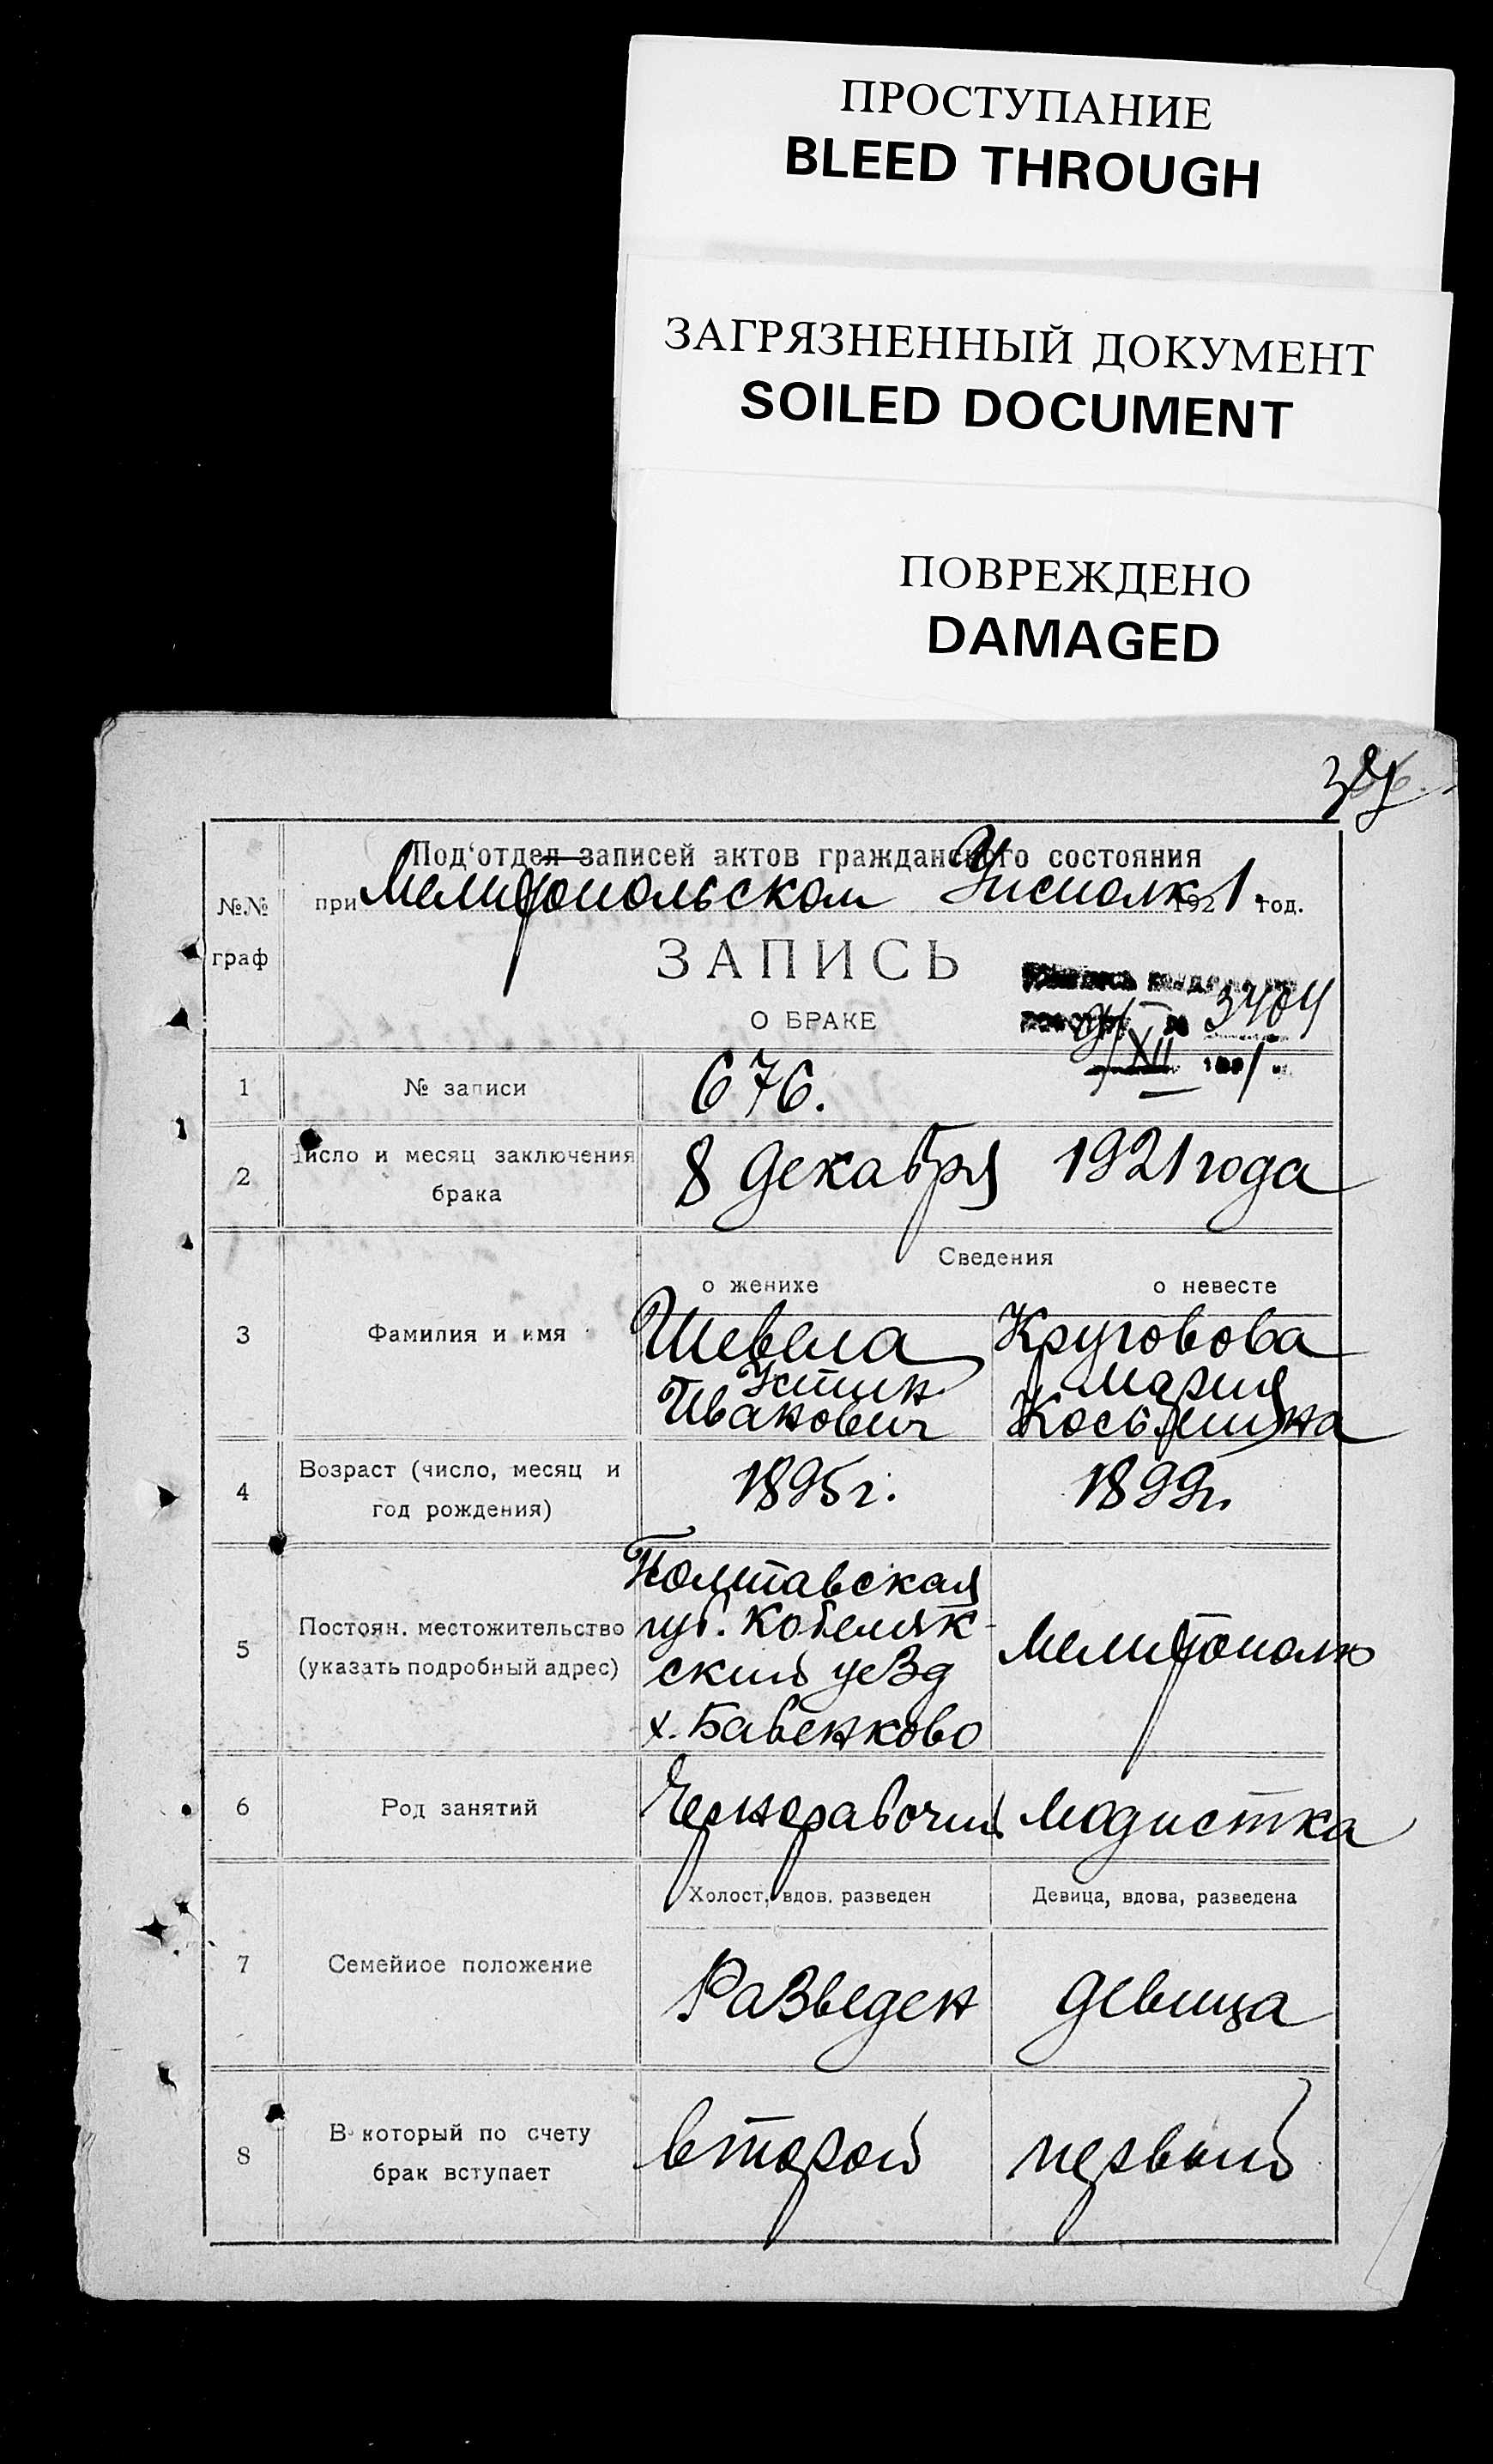 ПРОСТУПАНИЕ
BLEED THROUGH
ЗАГРЯЗНЕННЫЙ ДОКУМЕНТ
SOILED DOCUMENT
ПОВРЕЖДЕНО
DAMAGED
Под'отдел записей актов гражданского состояния
№№ при Мелитопольском Уисполк. 1921 год.
граф
ЗАПИСЬ
О БРАКЕ
3404
XII
1 № записи 676.
2 Число и месяц заключения брака 8 декабря 1921 года
Сведения
о женихе о невесте
3 Фамилия и имя Шевела Круговова
Устин Мария
Иванович
4 Возраст (число, месяц и год рождения) 1895 г. 1899 г.
5 Постоян. местожительство (указать подробный адрес)
Полтавская
губ. Кобеляк-
ский уезд
х. Бабенково
Мелитополь
6 Род занятий Чернорабочий Модистка
Холост, вдов. разведен Девица, вдова, разведена
7 Семейное положение Разведен девица
8 В который по счету брак вступает второй первый